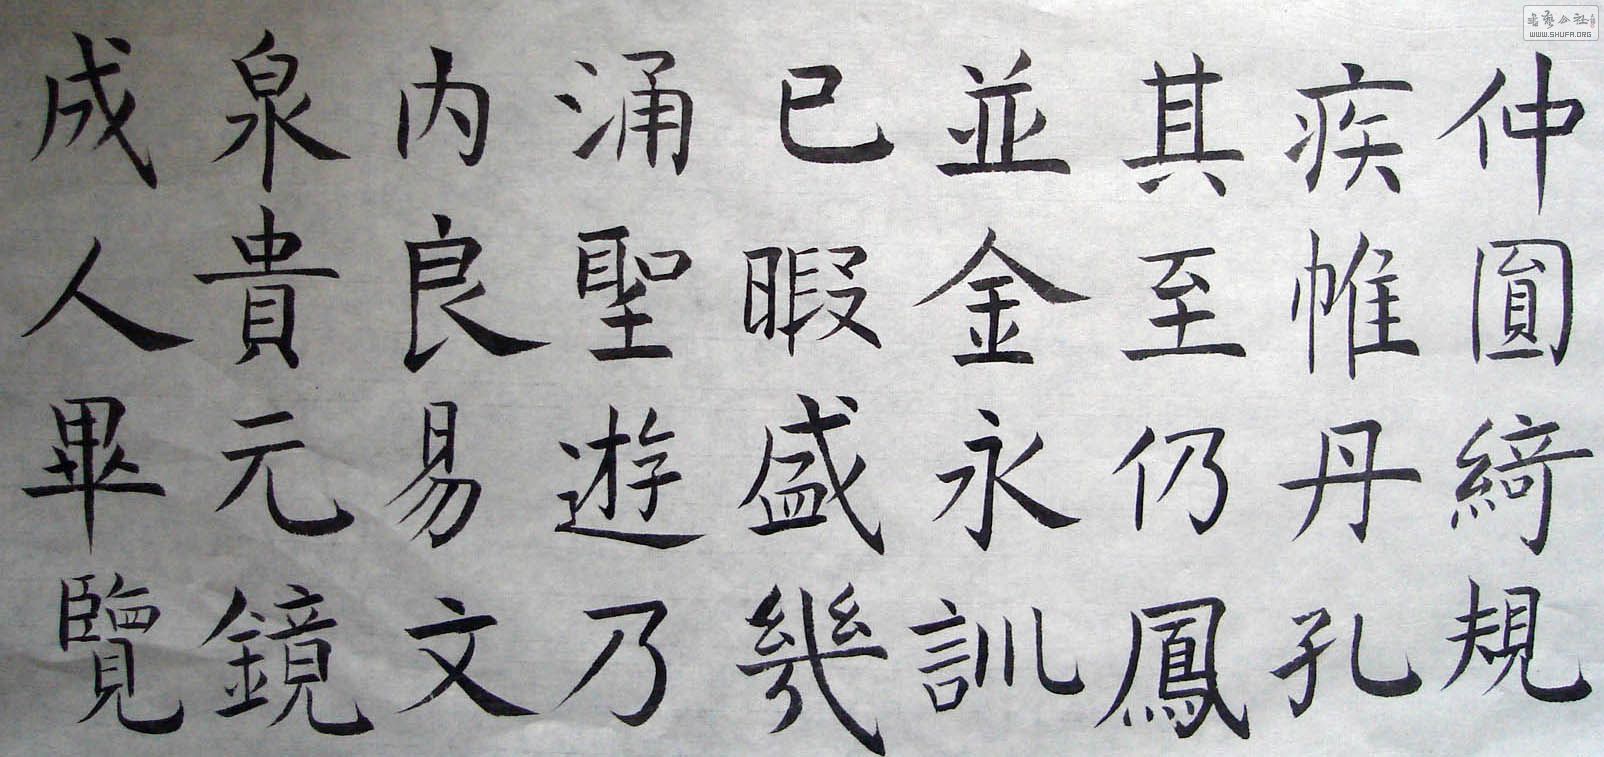 仲圎綺規
疾帷丹孔
其至仍鳳
並金永訓
已暇盛幾
涌聖遊乃
内良易文
泉貴元鏡
成人畢覽
书艺公社
WWW.SHUFA.ORG